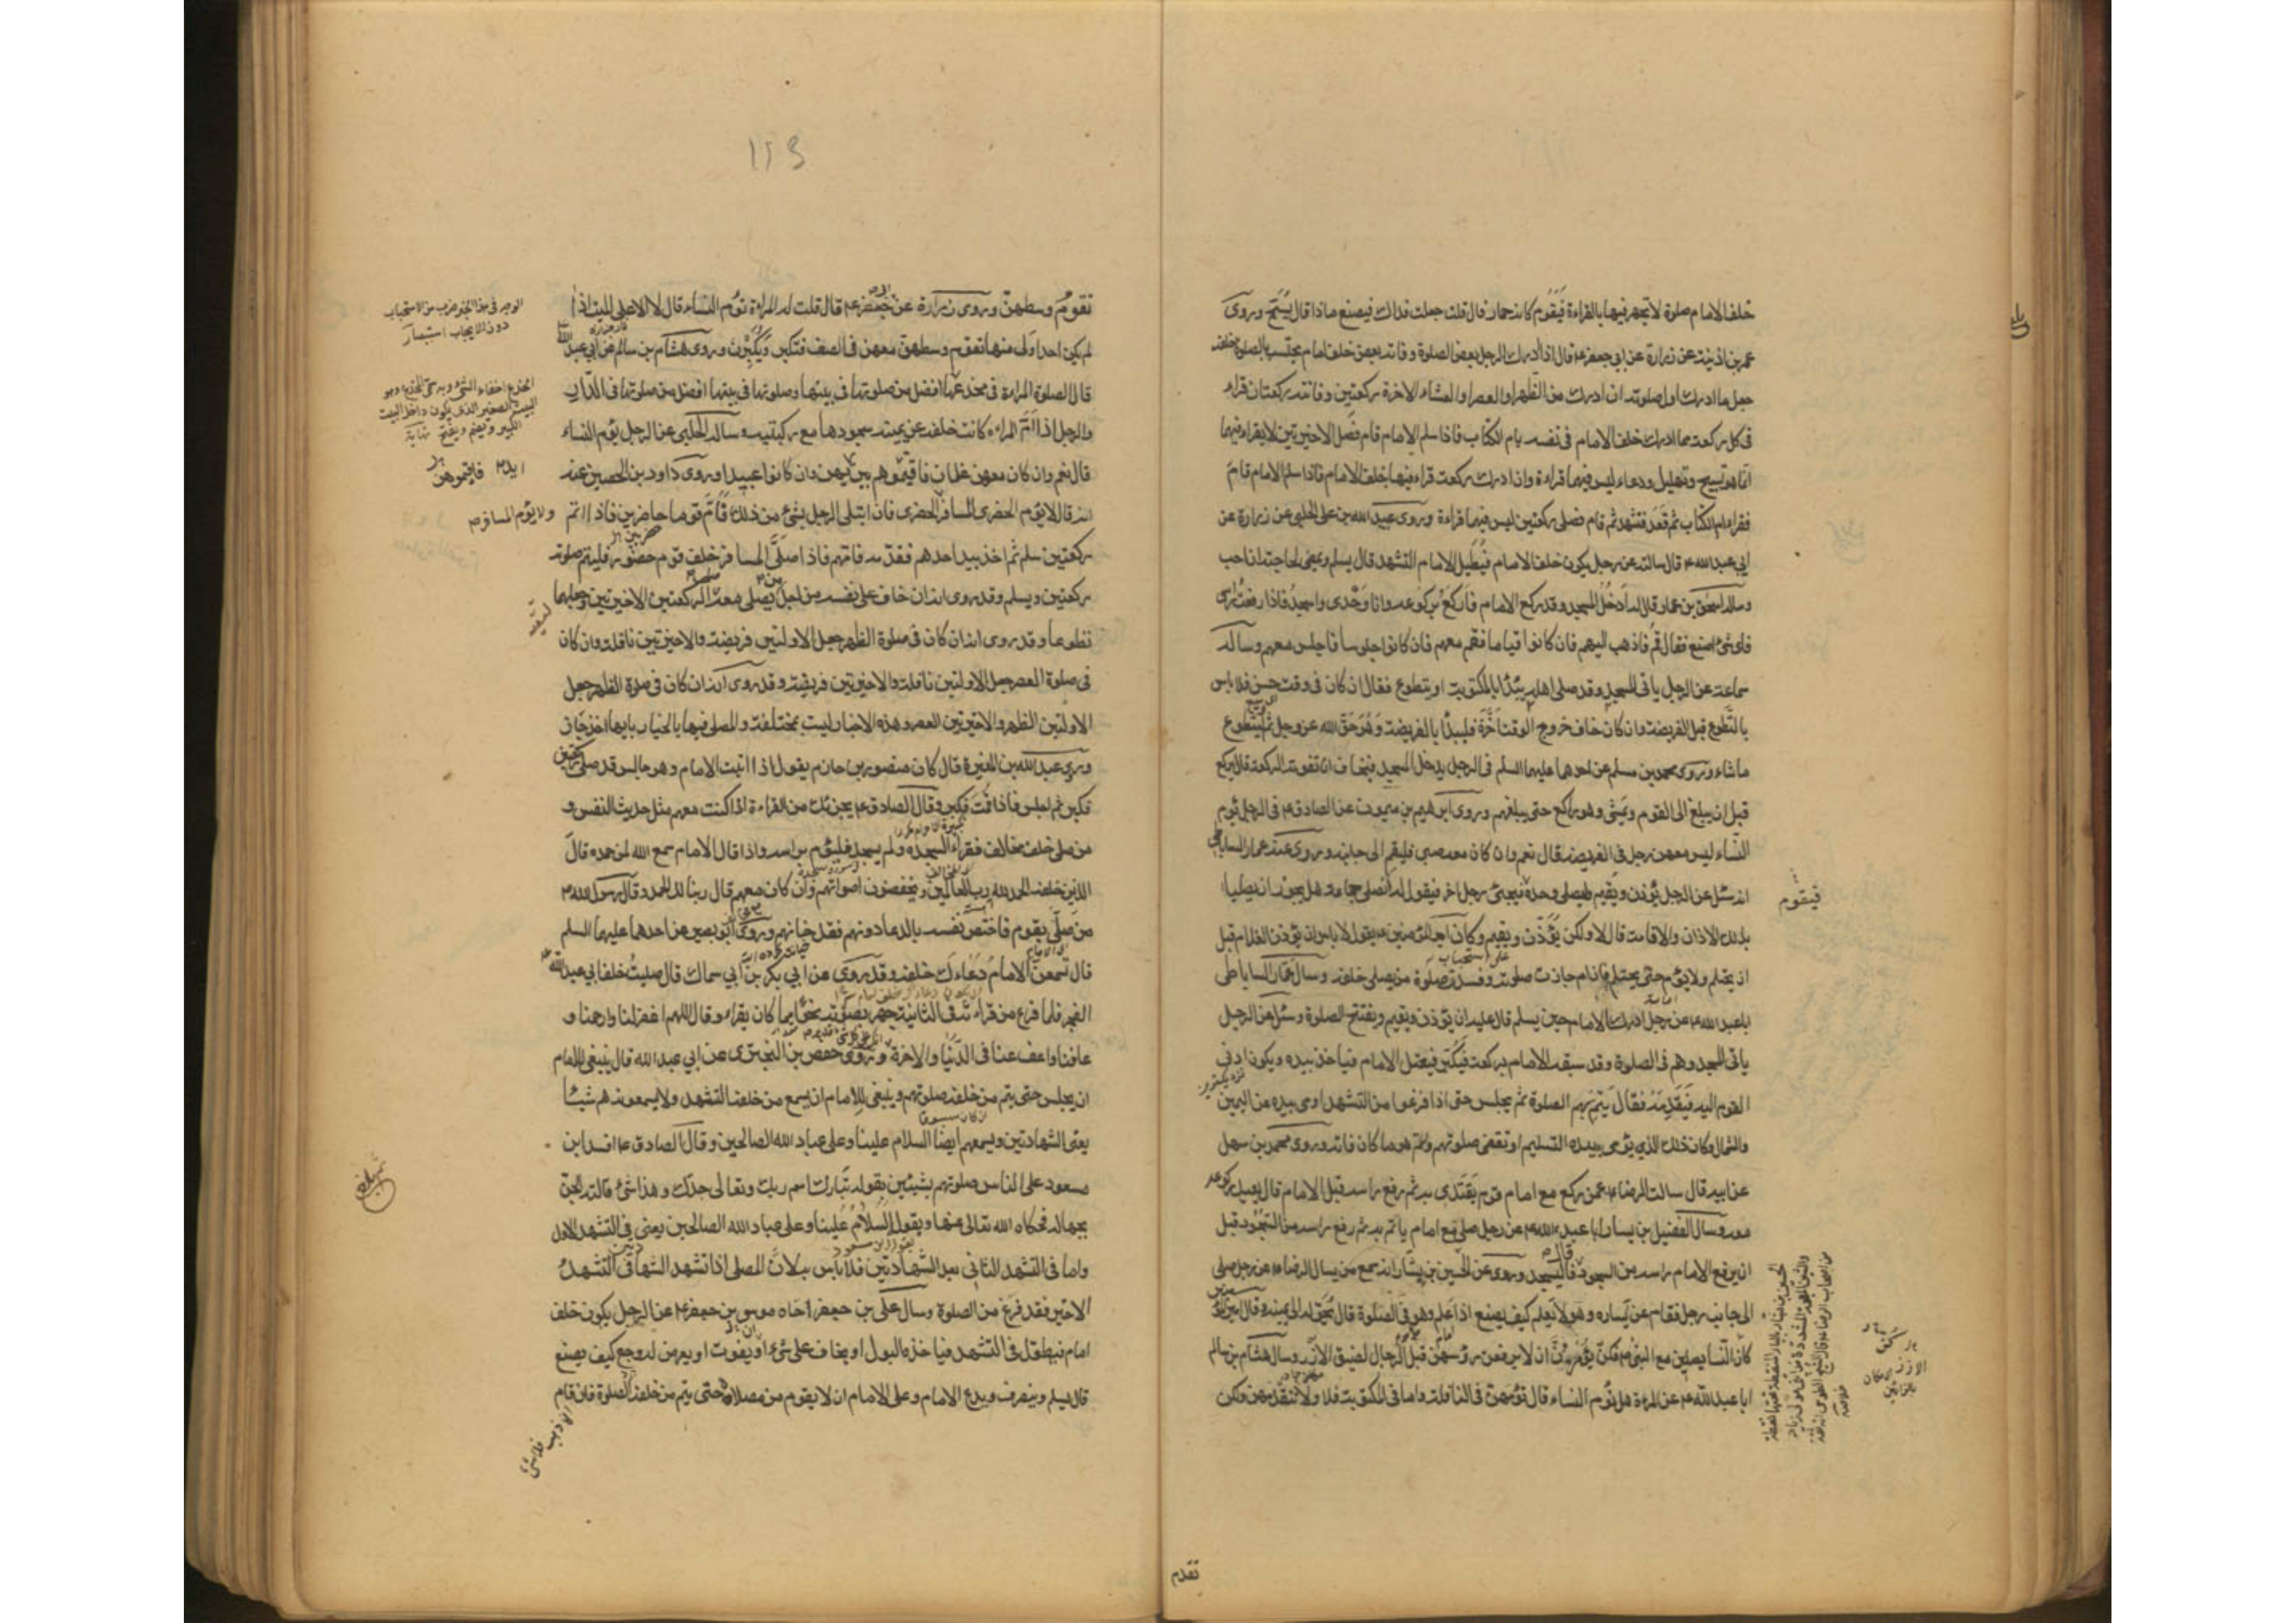 خلف الامام صلوة لا تجهر فيها بالقراءة فيقوم كانه حمار قال قلت جعلت فداك فيصنع ماذا قال يسبّح وروى
عمر بن اذينة عن زرارة عن ابي جعفر ع قال اذا ادرك الرجل بعض الصلوة وفاته بعض خلف امام يحتسب بالصلوة خلفه
جعل ما ادرك اول صلوته ان ادرك من الظهر او العصر او العشاء الاخرة ركعتين وفاتته ركعتان قراء
فى كل ركعة مما ادرك خلف الامام فى نفسه بام الكتاب فاذا سلم الامام قام فصلى الاخيرتين لا يقراء فيهما
انما هو تسبيح وتهليل ودعاء ليس فيهما قراءة وان ادرك ركعة قراء فيها خلف الامام فاذا سلم الامام قام
فقراء ام الكتاب ثم قعد فتشهد ثم قام فصلى ركعتين ليس فيهما قراءة وروى عبيد الله بن على الحلبى عن زرارة عن
ابى عبد الله ع قال سالته عن رجل يكون خلف الامام فيطيل الامام التشهد قال يسلم ويمضى لحاجته ان احب
وساله اسحق بن عمار قال له ادخل المسجد وقد ركع الامام فاركع بركوعه وانا وحدى واسجد فاذا رفعت راسى
فاى شئ اصنع فقال قم فاذهب اليهم فان كانوا قياما فقم معهم فان كانوا جلوسا فاجلس معهم وساله
سماعة عن الرجل ياتى المسجد وقد صلى اهله يبتدأ بالمكتوبة او يتطوع فقال ان كان فى وقت حسن فلا باس
بالتطوع قبل الفريضة وان كان خاف خروج الوقت اخره فليبدأ بالفريضة وهو حق الله عز وجل ثم ليتطوع
ما شاء وروى محمد بن مسلم عن احدهما عليهما السلم فى الرجل يدخل المسجد فيخاف ان تفوته الركعة قال يركع
قبل ان يبلغ الى القوم ويمشى وهو راكع حتى يبلغهم وروى ابرهيم بن ميمون عن الصادق ع فى الرجل يؤم
النساء ليس معهن رجل فى الفريضة قال نعم وان كان معه صبى فليقم الى جانبه وروى عنه عمار الساباطى
انه سئل عن الرجل يؤذن ويقيم ليصلى وحده فيجئ رجل اخر فيقول له أتصلى جماعة هل يجوز ان يصليا
بذلك الاذان والاقامة قال لا ولكن يؤذن ويقيم وكان امير المؤمنين ع يقول لا باس ان يؤذن الغلام قبل
ان يحتلم ولا يؤم حتى يحتلم فان ام جازت صلوته وفسدت صلوة من يصلى خلفه وسال عمار الساباطى
ابا عبد الله ع عن رجل ادرك الامام حين يسلم قال عليه ان يؤذن ويقيم ويفتتح الصلوة وسئل عن الرجل
ياتى المسجد وهم فى الصلوة وقد سبقه الامام بركعة فيكبر فيعتل الامام فياخذ بيده ويكون ادنى
القوم اليه فيقدمه فقال يتم بهم الصلوة ثم يجلس حتى اذا فرغوا من التشهد اومى بيده عن اليمين
والشمال وكان ذلك الذي يؤمى بيده التسليم او تقضى صلوتهم واتم هو ما كان فاته وروى محمد بن سهل
عن ابيه قال سالت الرضا ع عمن ركع مع امام قوم يقتدى به ثم رفع راسه قبل الامام قال يعيد ركوعه
معه وسال الفضيل بن يسار ابا عبد الله ع عن رجل صلى مع امام ياتم به ثم رفع راسه من السجود قبل
ان يرفع الامام راسه من السجود قال فليسجد وروى عن الحسين بن بشار انه سمع من يسال الرضا ع عن رجل صلى
الى جانب رجل فقام عن يساره وهو لا يعلم كيف يصنع اذا علم وهو فى الصلوة قال يحوله الى يمينه وقال امير المؤمنين
كان النساء يصلين مع النبى ص فكن يؤمرن ان لا يرفعن رؤسهن قبل الرجال لضيق الازر وسال هشام بن سالم
ابا عبد الله ع عن المراة هل تؤم النساء قال تؤمهن فى النافلة واما فى المكتوبة فلا ولا تتقدمهن ولكن
فيقوم
تقدم
١٢٣
تقوم وسطهن وروى زرارة عن ابى جعفر ع قال قلت له المراءة تؤم النساء قال لا الا على الميت اذا
لم يكن احد اولى منها تقوم وسطهن معهن فى الصف فتكبر ويكبرن وروى هشام بن سالم عن ابي عبد الله
قال الصلوة المراءة فى مخدعها افضل من صلوتها فى بيتها وصلوتها فى بيتها افضل من صلوتها فى الدار
والرجل اذا أمّ المراءة كانت خلفه عن يمينه سجودها مع ركبتيه وساله الحلبى عن الرجل يؤم النساء
قال نعم وان كان معهن غلمان فاقيموهم بين ايديهن وان كانوا عبيدا وروى داود بن الحصين عنه
انه قال لا يؤم الحضرى المسافر الحضرى فان ابتلى الرجل بشئ من ذلك فامّ قوما حاضرين فاذا اتم
ركعتين سلم ثم اخذ بيد احدهم فقدمه فامهم فاذا صلى المسافر خلف قوم حضور فليتم صلوته
ركعتين ويسلم وقد روى انه ان خاف على نفسه من اجل من يصلى معه صلى الركعتين الاخيرتين وجعلهما
تطوعا وقد روى انه ان كان فى صلوة الظهر جعل الاولتين فريضة والاخيرتين نافلة وان كان
فى صلوة العصر جعل الاولتين نافلة والاخيرتين فريضة وقد روى انه ان كان فى صلوة الظهر جعل
الاولتين الظهر والاخيرتين العصر وهذه الاخبار ليست بمختلفة والمصلى فيها بالخيار بايها اخذ جاز
وروى عبد الله بن المغيرة قال كان منصور بن حازم يقول اذا اتيت الامام وهو جالس قد صلى ركعتين
فكبر ثم اجلس فاذا قمت فكبر وقال الصادق ع يجزئك من القراءة اذا كنت معهم مثل حديث النفس و
من صلى خلف مخالف فقراء السجدة ولم يسجد فليؤم براسه واذا قال الامام سمع الله لمن حمده قال
الذين خلفه الحمد لله رب العالمين ويخفضون اصواتهم وان كان معهم قال ربنا لك الحمد وقال رسول الله ص
من صلى بقوم فاختص نفسه بالدعاء دونهم فقد خانهم وروى ابو بصير عن احدهما عليهما السلم
قال تسمعن الامام دعاءك خلفه وقد روى عن ابي بكر بن ابي سماك قال صليت خلف ابي عبد الله
الفجر فلما فرغ من قراءته فى الثانية جهر بصوته نحوا مما كان يقراء وقال اللهم اغفر لنا وارحمنا و
عافنا واعف عنا فى الدنيا والاخرة وروى حفص بن البخترى عن ابي عبد الله قال ينبغى للامام
ان يجلس حتى يتم من خلفه صلوتهم وينبغى للامام ان يسمع من خلفه التشهد ولا يسمعونه هم شيئا
يعنى الشهادتين ويسمعهم ايضا السلام علينا وعلى عباد الله الصالحين وقال الصادق ع افسد ابن
مسعود على الناس صلوتهم بشيئين بقوله تبارك اسم ربك وتعالى جدك وهذا شئ قالته الجن
بجهالة فحكاه الله تعالى عنها وبقوله السلام علينا وعلى عباد الله الصالحين يعنى فى التشهد الاول
واما فى التشهد الثانى بعد الشهادتين فلا باس به لان المصلى اذا تشهد الشهادتين فى التشهد
الاخير فقد فرغ من الصلوة وسال على بن جعفر اخاه موسى بن جعفر ع عن الرجل يكون خلف
امام فيطول فى التشهد فياخذه البول او يخاف على شئ ان يفوت او يعرض له وجع كيف يصنع
قال يسلم وينصرف ويدع الامام وعلى الامام ان لا يقوم من مصلاه حتى يتم من خلفه الصلوة فان قام
الوجه فى هذا الخبر ضرب من الاستحباب
دون الايجاب استبصار
البيت الصغير الذى يكون داخل البيت
الكبير ويضم ويفتح نهاية
ولا يؤم المسافر